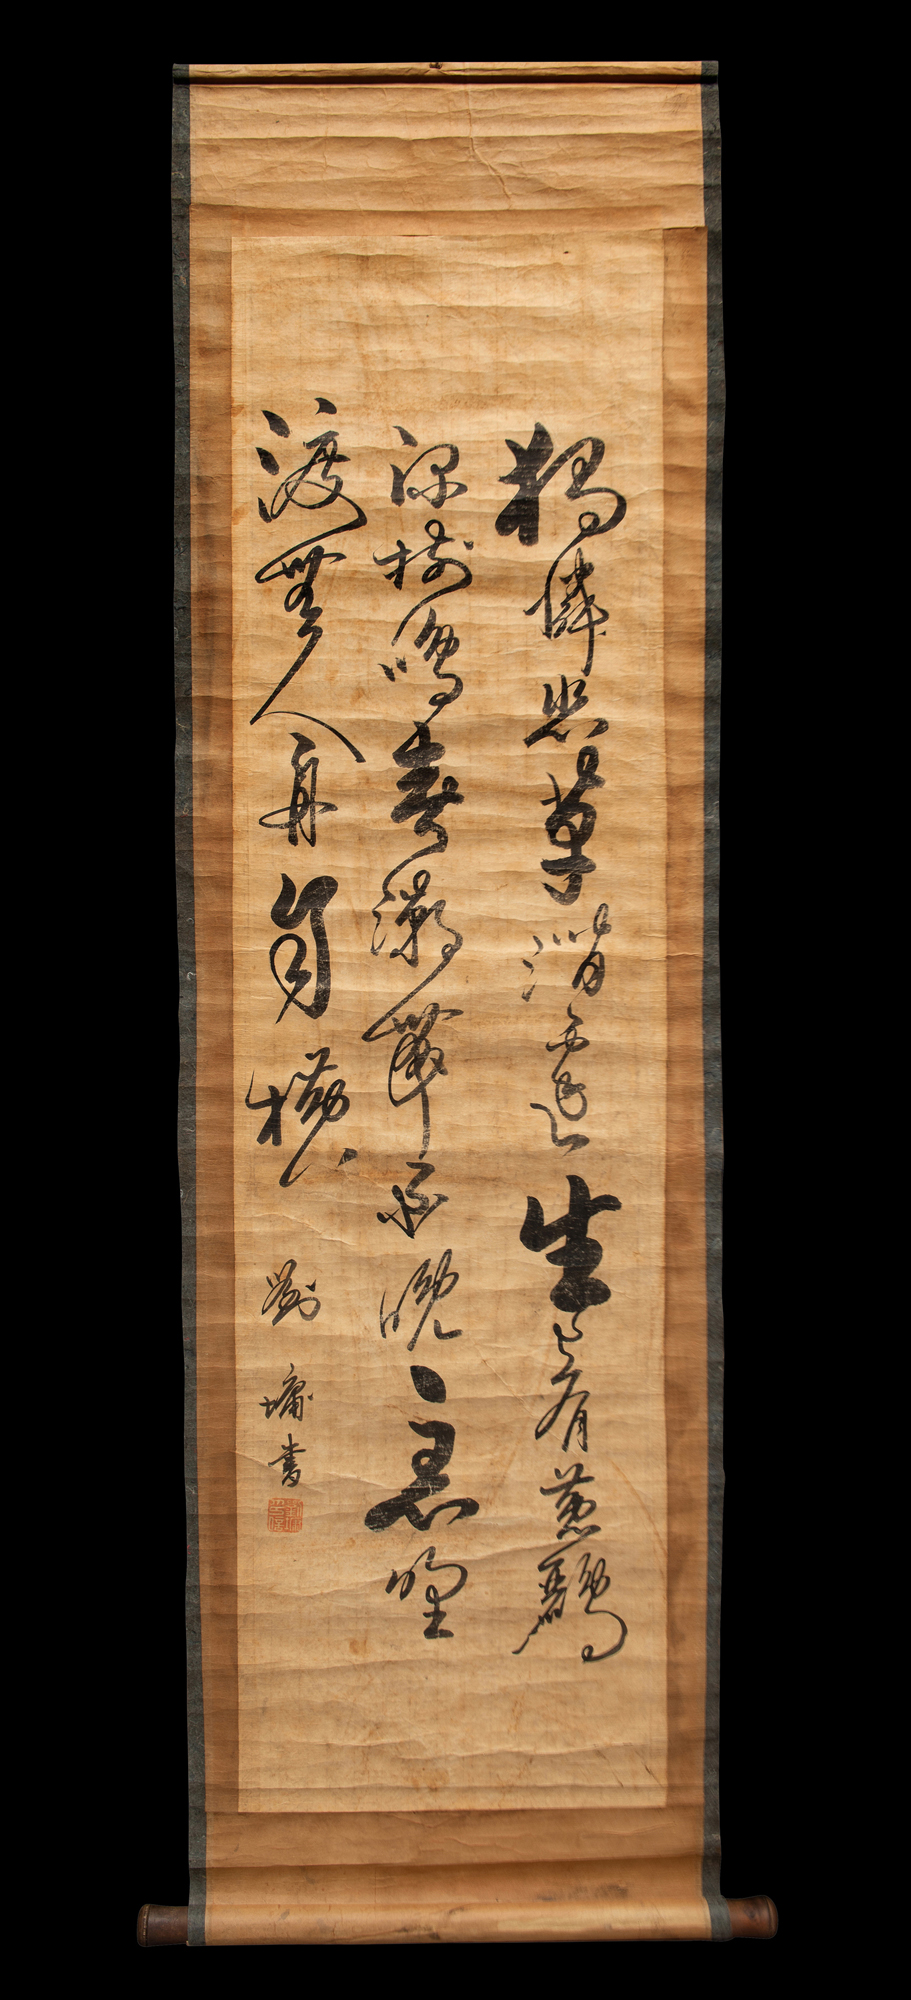 獨憐幽草澗邊生上有黃鸝
深樹鳴春潮帶雨晚急野
渡無人舟自橫
劉墉書